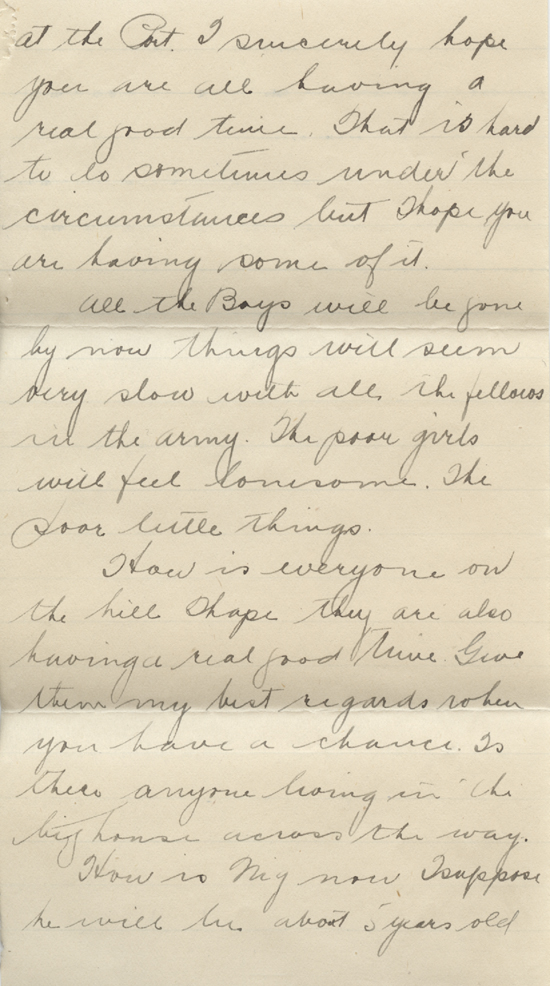 at the Port. I sincerely hope
you are all having a
real good time. That is hard
to do sometimes under the
circumstances but I hope you
are having some of it.
All the Boys will be gone
by now things will seem
very slow with all the fellows
in the army. The poor girls
will feel lonesome. The
poor little things.
How is everyone on
the hill I hope they are also
having a real good time Give
them my best regards when
you have a chance. Is
there anyone living in the
big house across the way.
How is Nig now I suppose
he will be about 5 years old